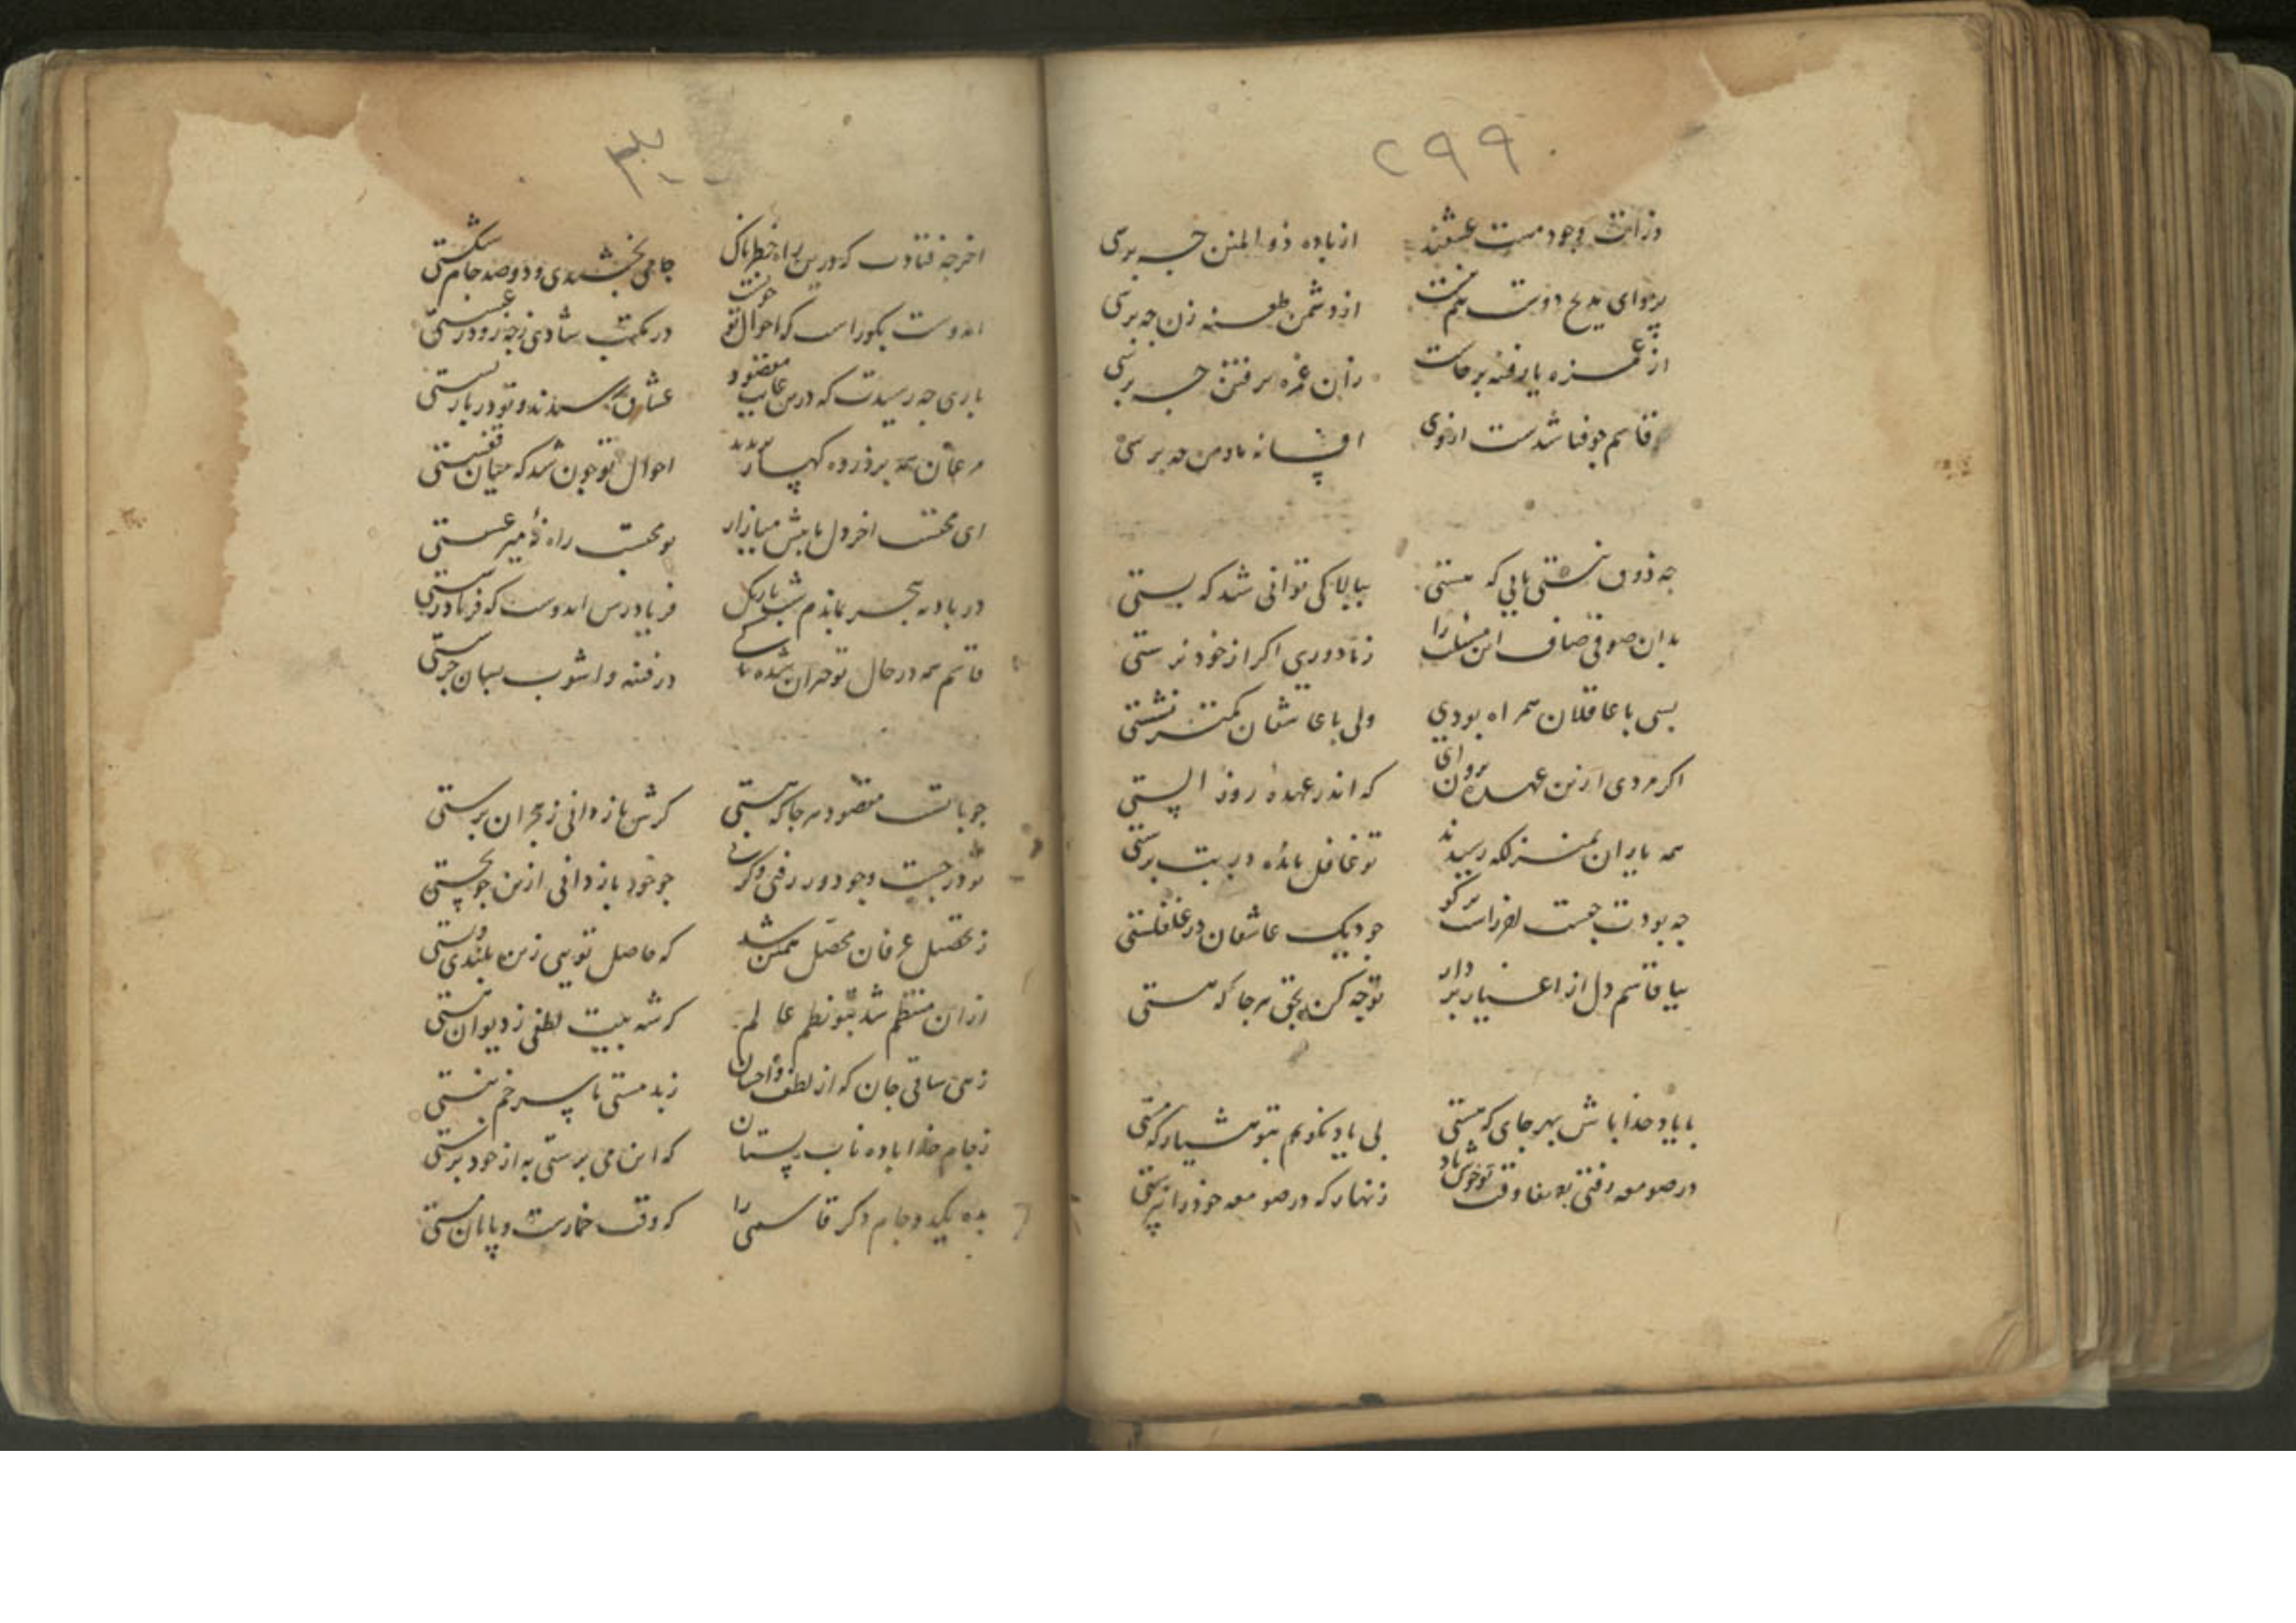 ۲۹۹
ذرات وجود مست عشقند از باده ذو المنن چه پرسی
پروای مدیح دوستم نیست از دشمن طعنه زن چه پرسی
از غمزه یار فتنه برخاست زان غمزه پرفتن چه پرسی
قاسم چو فنا شدست از خوی افسانه ما و من چه پرسی
چه ذوق نشئتی یابی که مستی ببالا کی توانی شد که پستی
بدان صوفی صاف این سخن را ز ما دوری اگر از خود نرستی
بسی با عاقلان همراه بودی ولی با عاشقان کمتر نشستی
اگر مردی ازین عهده برون آی که اندر عهده روز الستی
همه یاران بمنزلگه رسیدند تو غافل مانده در بت پرستی
چه بودت چیست احوالت بگو چو دیگ عاشقان در غلغلستی
بیا قاسم دل از اغیار بردار توجه کن بحق هر جا که هستی
با یاد خدا باش بهر جای که هستی بی یاد نگویم بتو هشیار که مستی
در صومعه رفتی بصفا وقت تو خوش باد زنهار که در صومعه خود را نپرستی
۳۰۰
آخر چه فتادت که درین راه خطرناک جامی بچشیدی و دو صد جام شکستی
ای دوست بگو راست که احوال تو چونست در مکتب شادی ز چه رو در عبستی
باری چه رسیدت که درین غایت مقصود عشاق رسیدند و تو در بار بستی
مرغان همه بر ذروه کهسار پریدند احوال تو چون شد که میان قفستی
ای محتسب آخر دل ما بیش میازار تو محتسب راه نه میر عسستی
در بادیه هجر بماندم شب تاریک فریادرس ای دوست که فریادرستی
قاسم همه در حال تو حیران شده تا کی در فتنه و آشوب بسان جرستی
چو با تست مقصود هر جا که هستی گرش باز دانی ز هجران برستی
تو در جست و جو دور رفتی وگرنی چو خود باز دانی ازین جو بجستی
ز تحصیل عرفان محصل همین شد که حاصل تویی زین بلندی و پستی
ازان منتظم شد بتو نظم عالم که شه بیت لطفی ز دیوان هستی
زهی ساقی جان که از لطف و احسان ز بد مستی ما سر خم نبستی
ز جام خدا باده ناب بستان که این می پرستی به از خود پرستی
بده یک دو جام دگر قاسمی را که وقت خمارست و پایان مستی